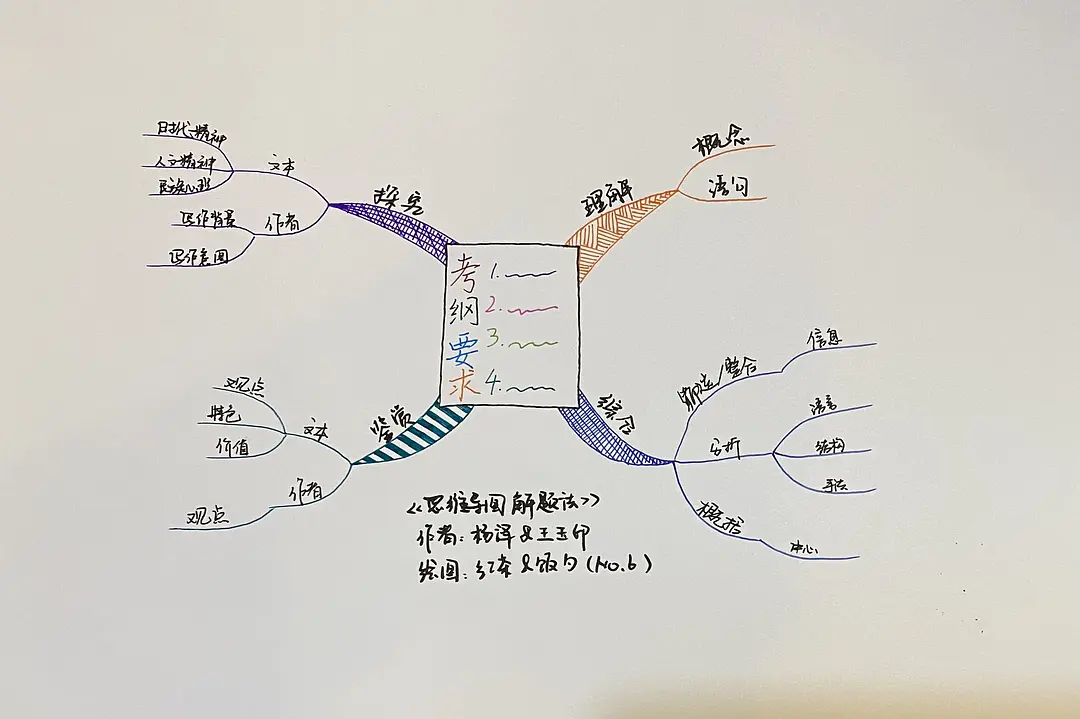 考纲要求
1.
2.
3.
4.
理解
概念
语句
综合
筛选/整合
信息
分析
语言
结构
手法
概括
中心
鉴赏
文本
观点
特色
价值
作者
观点
探究
文本
时代精神
人文精神
民族心理
作者
写作背景
写作意图
《思维导图解题法》
作者：杨泽&王玉印
绘图：红茶&饭勺(No.6)